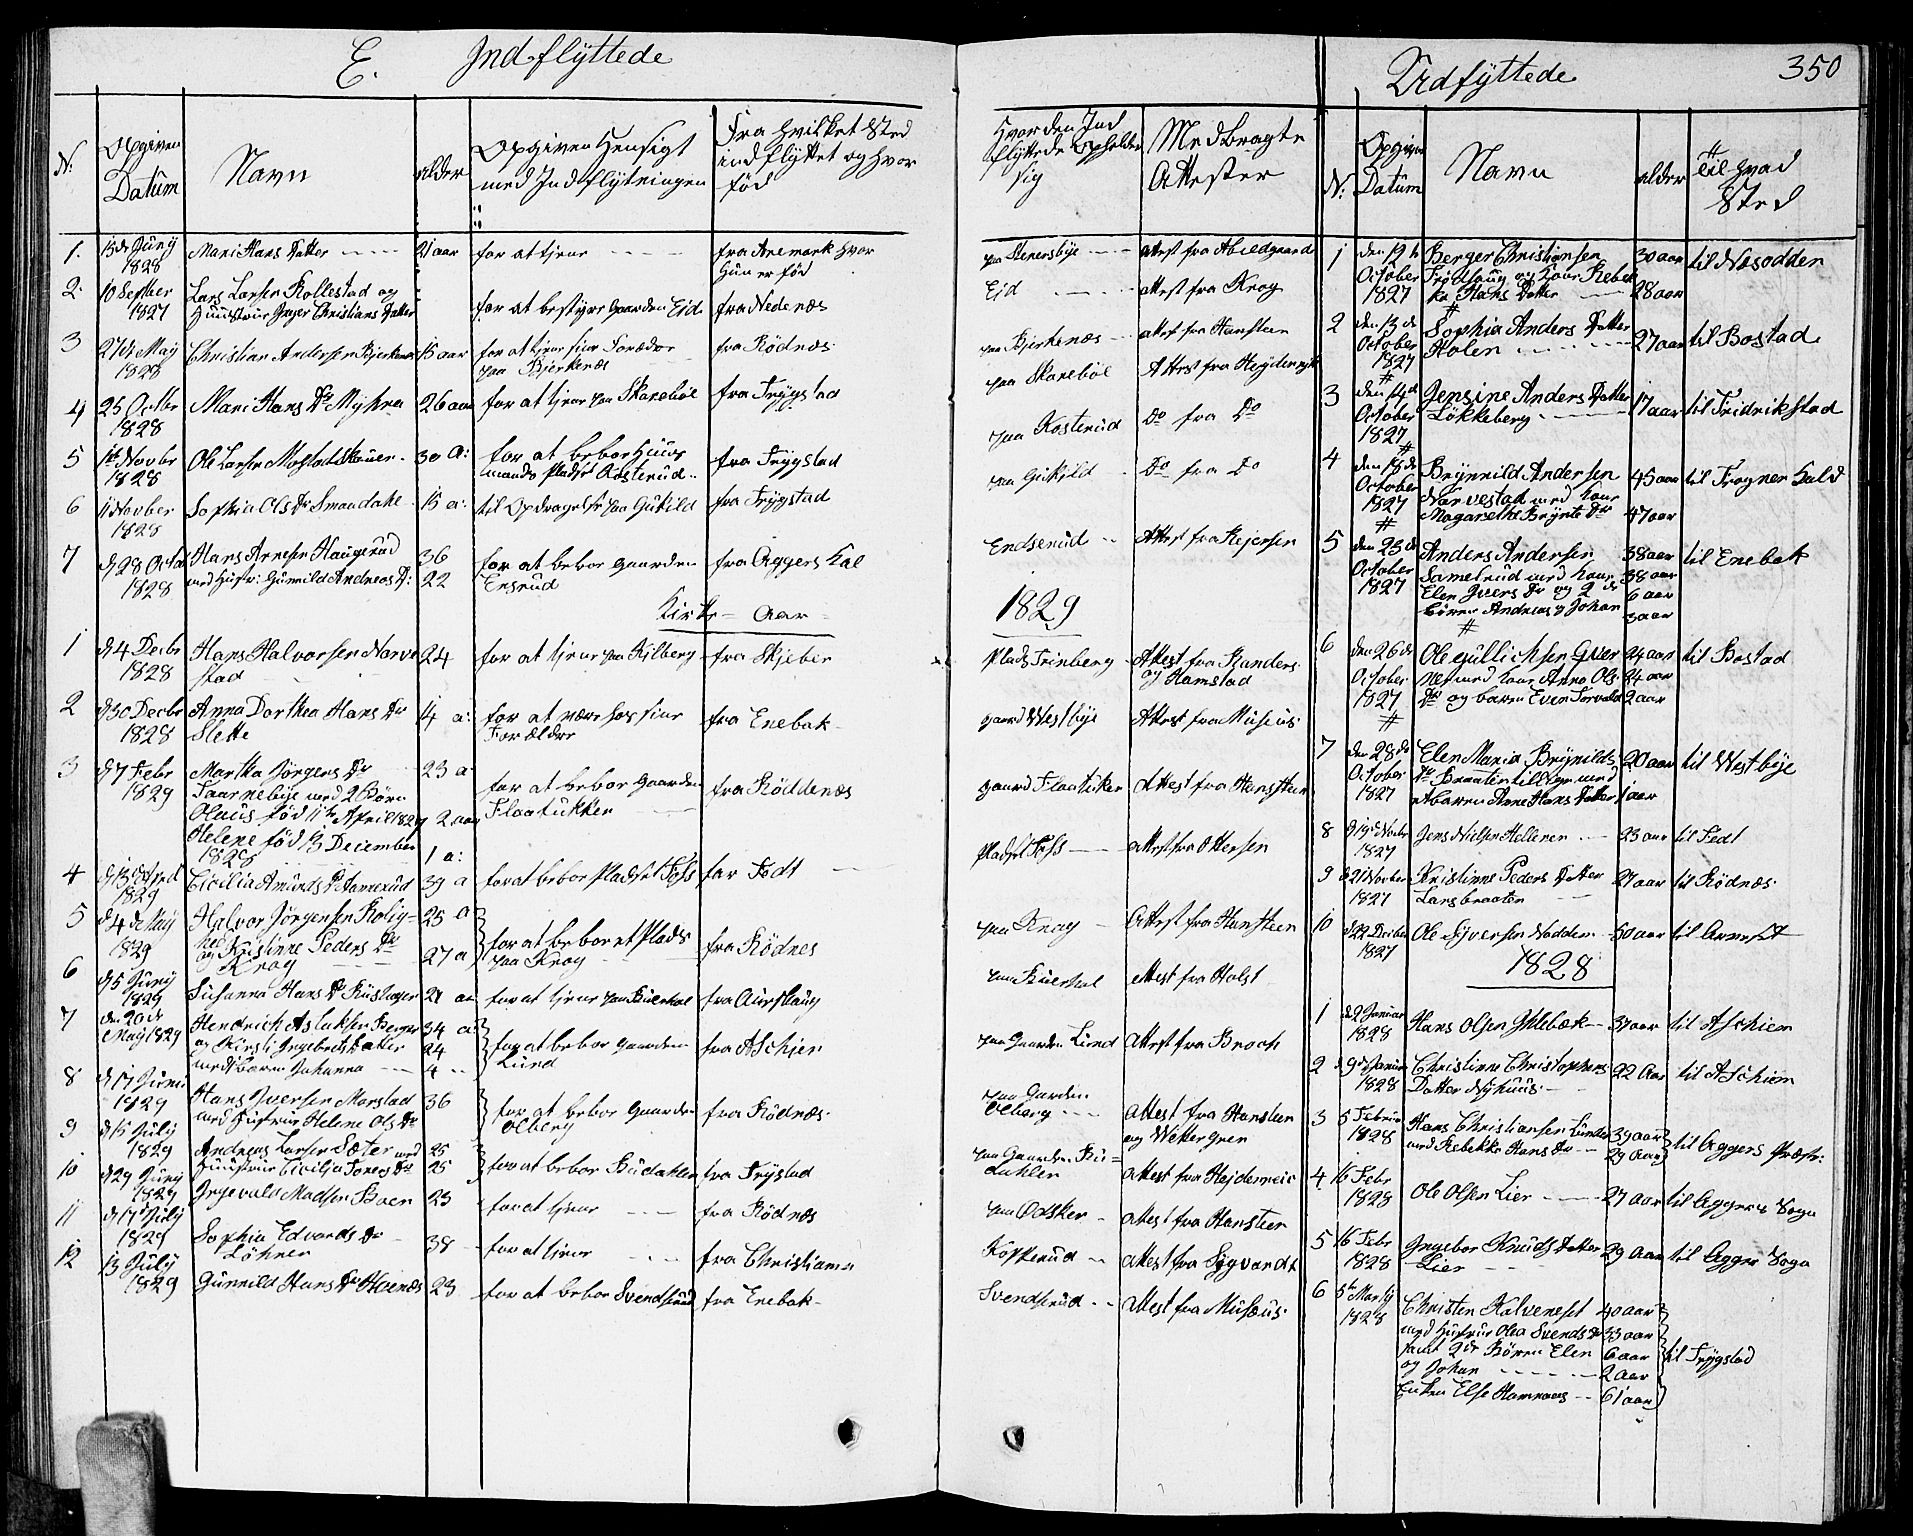 E. Indflyttede
N.
Opgiven Datum
Navn
alder
Opgiven Hensigt med Indflytningen
Fra hvilket Sted indflyttet og hvor fød
Hvor den Indflyttede opholder sig
Medbragte Attester
1. 15de Juny 1828 Mari Hans Datter 21 aar for at tjene fra Aremark hvor Hun er fød paa Stenersbye attest fra Abildgaard
2. 10 Septber 1827 Lars Larsen Kollestad og Huustrue Inger Christians Datter for at bestyre Gaarden Eid fra Nedenæs Eid attest fra Krog
3 27de May 1828 Christian Andersen Bjerkenæs 15 aar for at tjene sine Forædre paa Bjerkenæs fra Rödnæs paa Bjerkenæs attest fra Hansteen
4 25 Octbr 1828 Mari Hans Dr Myhra 26 aar for at tjene paa Skaneböl fra Trygstad paa Skaneböl Attest fra
5 1te Novbr 1828 Ole Larsen 30 a: for at beboe Huusmands Pladset Kosterud fra Trygstad paa Kosterud Do fra Do
6 11 Novber 1828 Sophia Ols Dr Smaadahl 15 a: til Opdragelse paa Gukild fra Trygstad paa Gukild Do fra Do
7 d 28 Octob 1828 Hans Arnesen Haugerud med Hustr: Gunild Andreas D: 36 22 for at beboe gaarden Ensrud fra Aggers Kal Endserud Attest fra Kejersen
Kirke-Aar 1829
1 d 4 Decbr 1828 Hans Halvorsen Narvestad 24 for at tjene paa Kilberg fra Skjeber Plads Trinberg Attest fra Randers og Ramstad
2 d 30 Decbr 1828 Anna Dorthea Hans Dr Slette 14 a: for at være hos sine Forældre fra Enebak gaard Westbye Attest fra Musæus
3 d 7 Febr 1829 Martha Jörgens Dr Taarnebye med 2 Börn Olaus fød 11te April 1827 Helene fød 13 December 1828 23 a 2 aar 1 a: for at beboe gaarden Flaatukken fra Röddenæs gaard Flaatuken Attest fra Hansteen
4 d 13 April 1829 Cicilia Amunds D 39 a for at beboe Pladset Foss far Fedt Pladset Foss attest fra Ottersen
5 d 4de May 1829 Halvor Jörgensen Kolighed og Kristinne Peders Dr Krog 25 a 27 a for at beboe et Plads paa Krog fra Rödnes paa Krog Attest fra Hansteen
6 d 5 Juny 1829 Susanna Hans Dr 21 aar for at tjene paa fra Aurshaug paa Attest fra Holst
7 den 20de May 1829 Hendrich Aslaksen Berger og Kirsti Ingebrets Datter med Barn Johanna 34 a 24 4 for at beboe gaarden Lund fra Aschier paa Gaarden Lund Attest fra Broch
8 d 17 Juni 1829 Hans Iversen Marstad med Hustrue Helene Ols Dr 36 for at beboe Gaarden Olberg fra Rödnæs paa Gaarden Olberg Attest fra Hansteen og Wettergren
9 d 15 July 1829 Andreas Larsen Sæter med Huustrue Cicilia Tores Dr 25 25 for at beboe Budahlen fra Trygstad paa Gaarden Attest fra
10 d 29 Juny 1829 Ingevald Madsen Boen 23 for at tjene fra Rödnæs paa Odsker attest fra Hansteen
11 d 17 July 1829 Sophia Edvards Dr Löhnen 38 for at tjene fra Christiania Kopperud attest fra Sygvardt
12 13 July 1829 Gunnild Hans Dr 23 for at beboe Svendsrud fra Enebak Svendsrud Attest fra Musæus
Udfyttede 350
N. Opgiven Datum Navn alder Til hvad Sted
1 den 12te October 1827 Berger Christiansen Frödshaug og Kone Rebekka Hans Datter 30 aar 28 aar til Næsodden
2 den 13de October 1827 Sophia Anders Datter Holen 27 aar til Bostad
3 den 14d October 1827 Jensine Anders Datter Lökkeberg 17 aar til Fridrikstad
4 den 18de October 1827 Brynnild Andersen Narvestad med Kone Magarethe Brynte Dr 45 aar 47 aar til Frogner Kald
5 den 25de October 1827 Anders Andersen Sametrud med Kone Elen Ivers Dr og 2de börn Andreas og Johan 38 aar 38 aar 6 aar 3 aar til Enebak
6 den 26de October 1827 Ole Gullichsen med Kone Anne Ols Dr og barn Even 24 aar 24 aar 2 aar til Bostad
7 den 28de October 1827 Elen Maria Brynilds Dr Braaten tilligemed et barn Anne Hans Datter 20 aar 1 aar til Westbye
8 d 19de Novbr 1827 Jens Nielsen Hellenen 23 aar til Fedt
9 d 21 Novber 1827 Kristinne Peders Datter Larsbraaten 27 aar til Rödnæs
10 d 22 Decber 1827 Ole Syversen Nodden 50 aar til
1828
1 d 2 Januar 1828 Hans Olsen 37 aar til Aschiem
2 d 9de Januar 1828 Christinne Christophers Datter Nyhuus 22 Aar til Aschiem
3 5 Februar 1828 Hans Christiansen Lunder med Rebekke Hans Dr 39 aar 29 Aar til Aggers Præstr:
4 16 Febr 1828 Ole Olsen Lier 27 aar til Aggers Sogn
5 16 Febr 1828 Ingebor Knuds Datter Lier 29 Aar til Aggers Sogn
6 5te Martz 1828 Christen Kalveneset med Hustrue Olea Svends Dr samt 2de Börn Elen og Johan Enken Else 40 aar 33 aar 6 aar 2 aar 61 aar til Trygstad